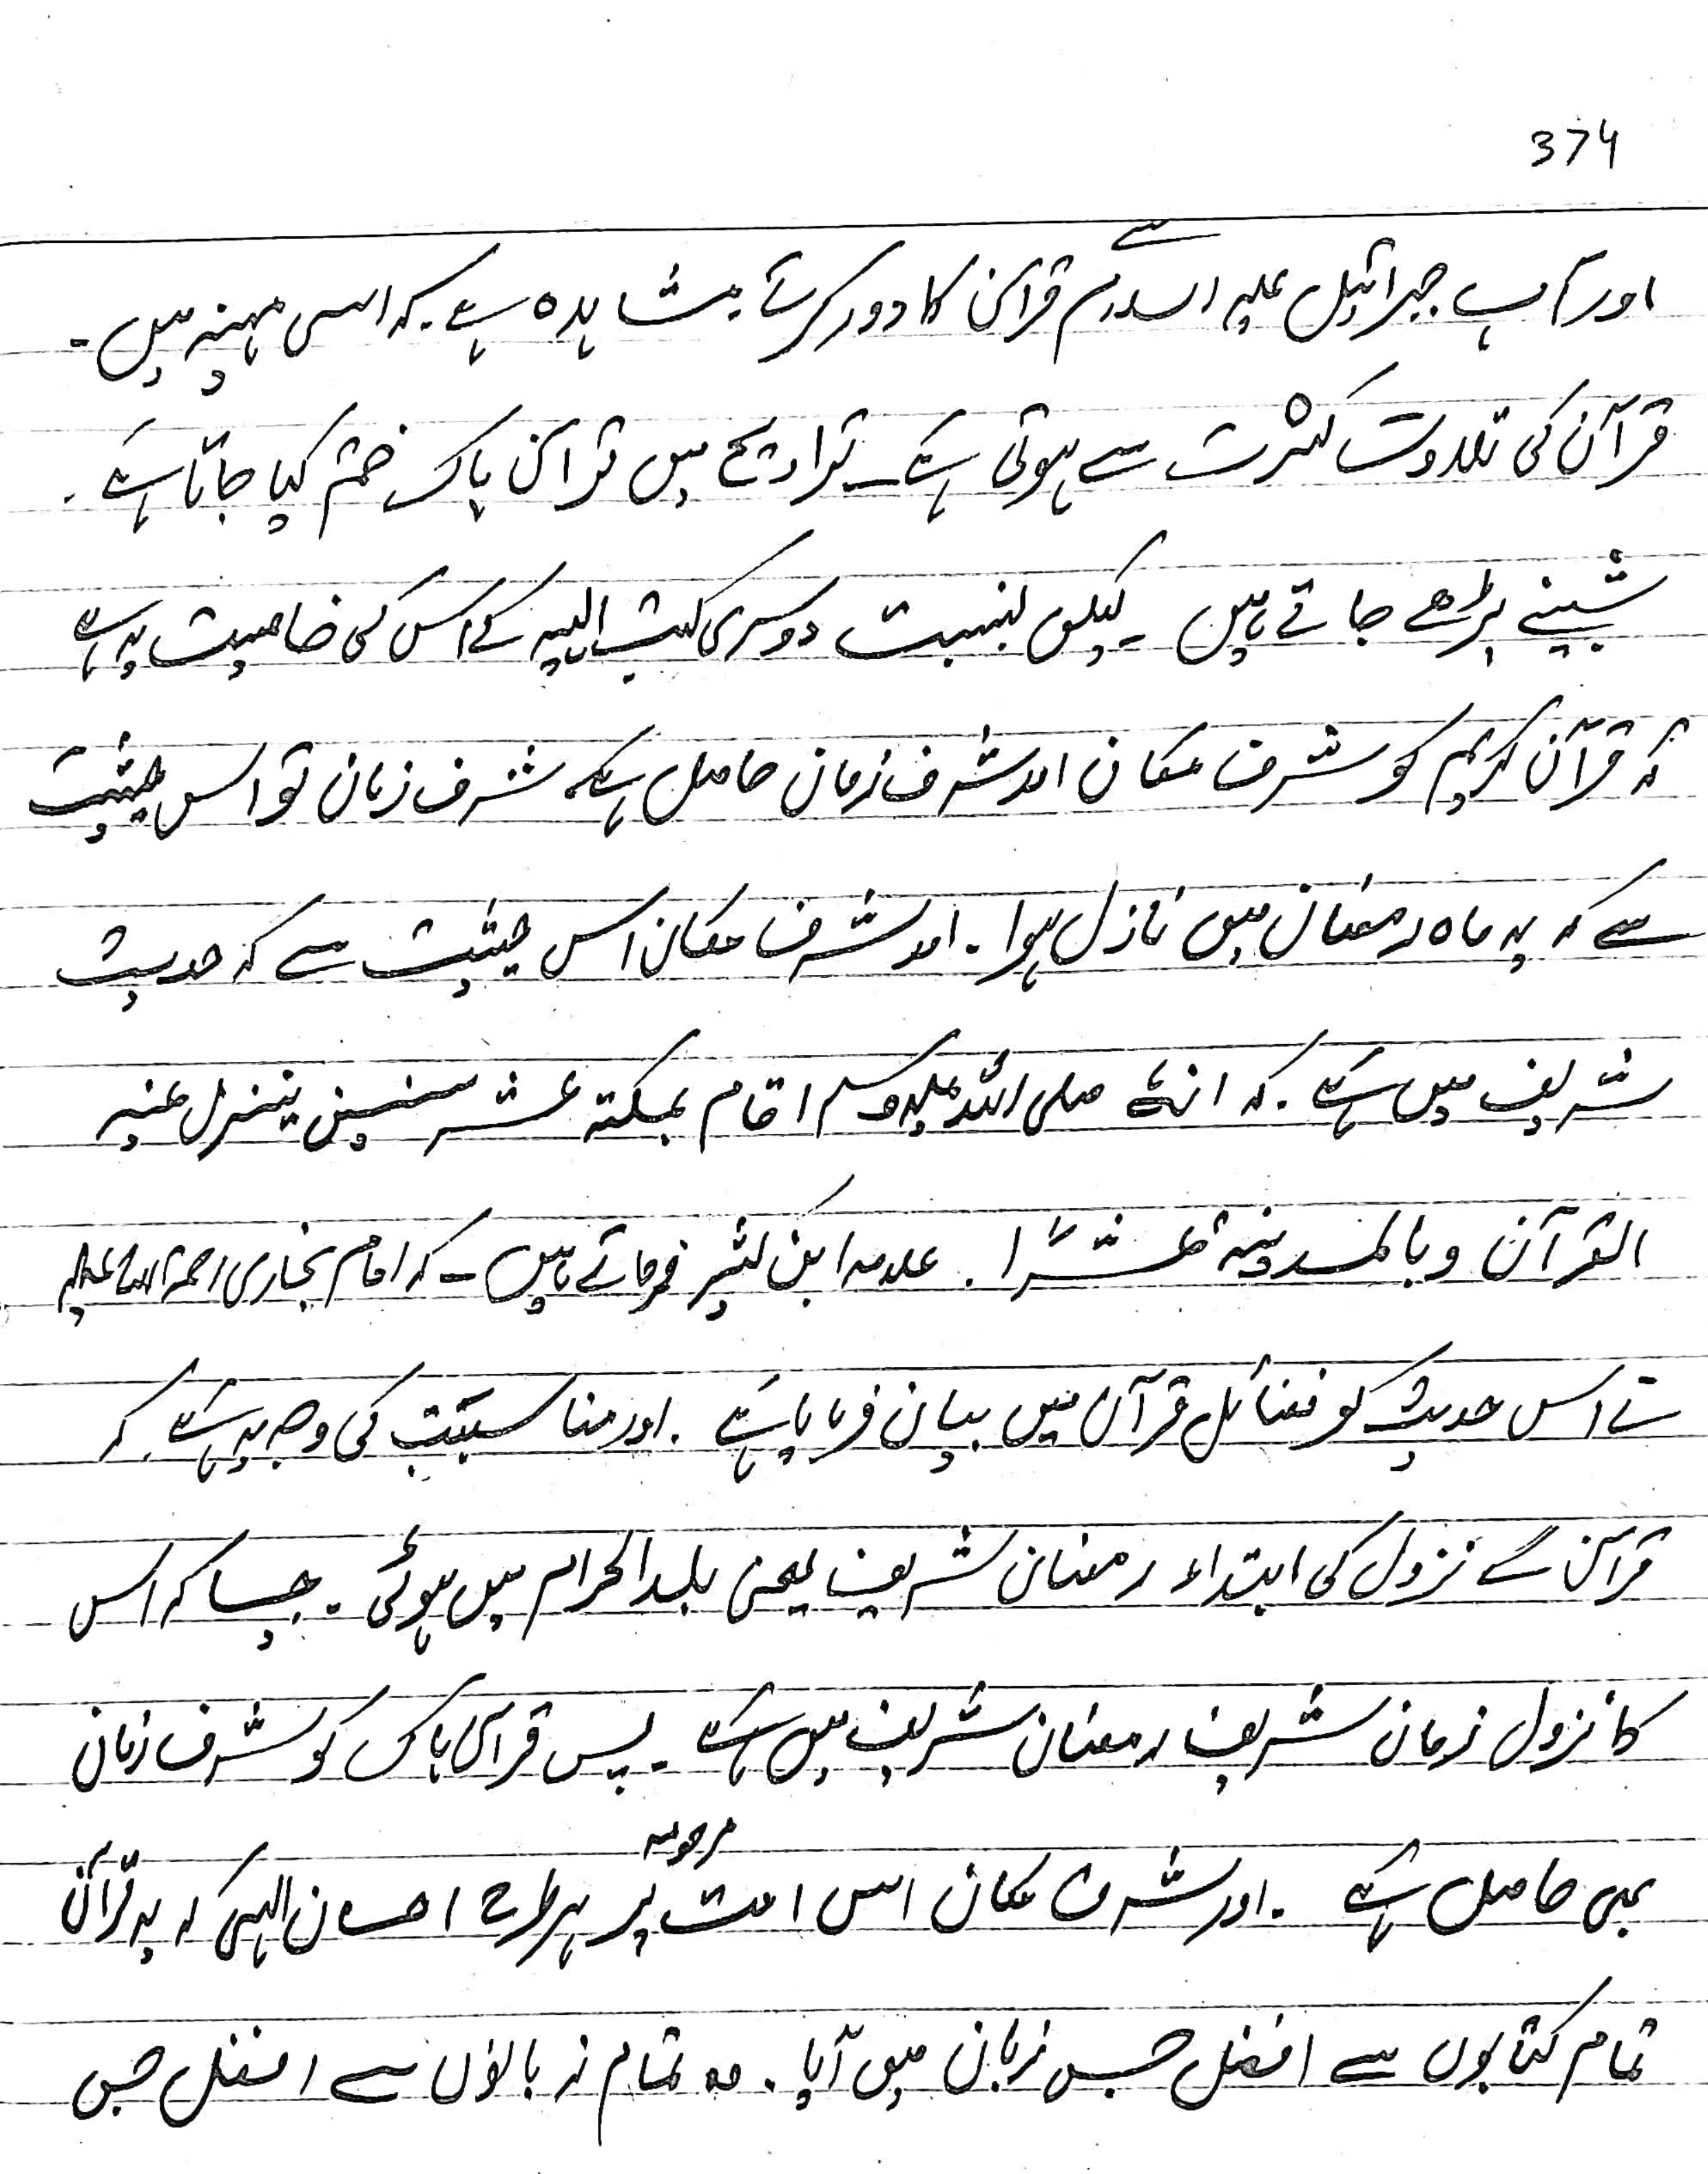 374
اور آپ جبرائیل علیہ السلام سے قرآن کا دور کرتے۔ مشاہدہ ہے۔ کہ اسی مہینہ میں۔
قرآن کی تلاوت کثرت سے ہوتی ہے۔ تراویح میں قرآن پاک ختم کیا جاتا ہے۔
شبینے پڑھے جاتے ہیں۔ لیکن بنسبت دوسری کتب الہیہ کے اس کی خاصیت یہ ہے
کہ قرآن کریم کو شرف مکان اور شرف زمان حاصل ہے۔ شرف زمان تو اس حیثیت
سے کہ یہ ماہ رمضان میں نازل ہوا۔ اور شرف مکان اس حیثیت سے کہ حدیث
شریف میں ہے۔ کہ انہٗ صلی اللہ علیہ وسلم اقام بمکتہ عشر سنین ینزل عنیہ
القرآن وبالمدینۃ عشرًا۔ علامہ ابن کثیر فرماتے ہیں۔ کہ امام بخاری رحمۃ اللہ علیہ
نے اس حدیث کو فضائل قرآن میں بیان فرمایا ہے۔ اور مناسبت کی وجہ یہ ہے۔ کہ
قرآن کے نزول کی ابتداء رمضان شریف یعنی بلد الحرام میں ہوئی۔ جیسا کہ اس
کا نزول زمان شریف رمضان شریف میں ہے۔ پس قرآن پاک کو شرف زمان
بھی حاصل ہے۔ اور شرف مکان اس امت مرحومہ پر ہر طرح احسان الہی کہ یہ قرآن
تمام کتابوں سے افضل جس زبان میں آیا۔ وہ تمام زبانوں سے افضل جس